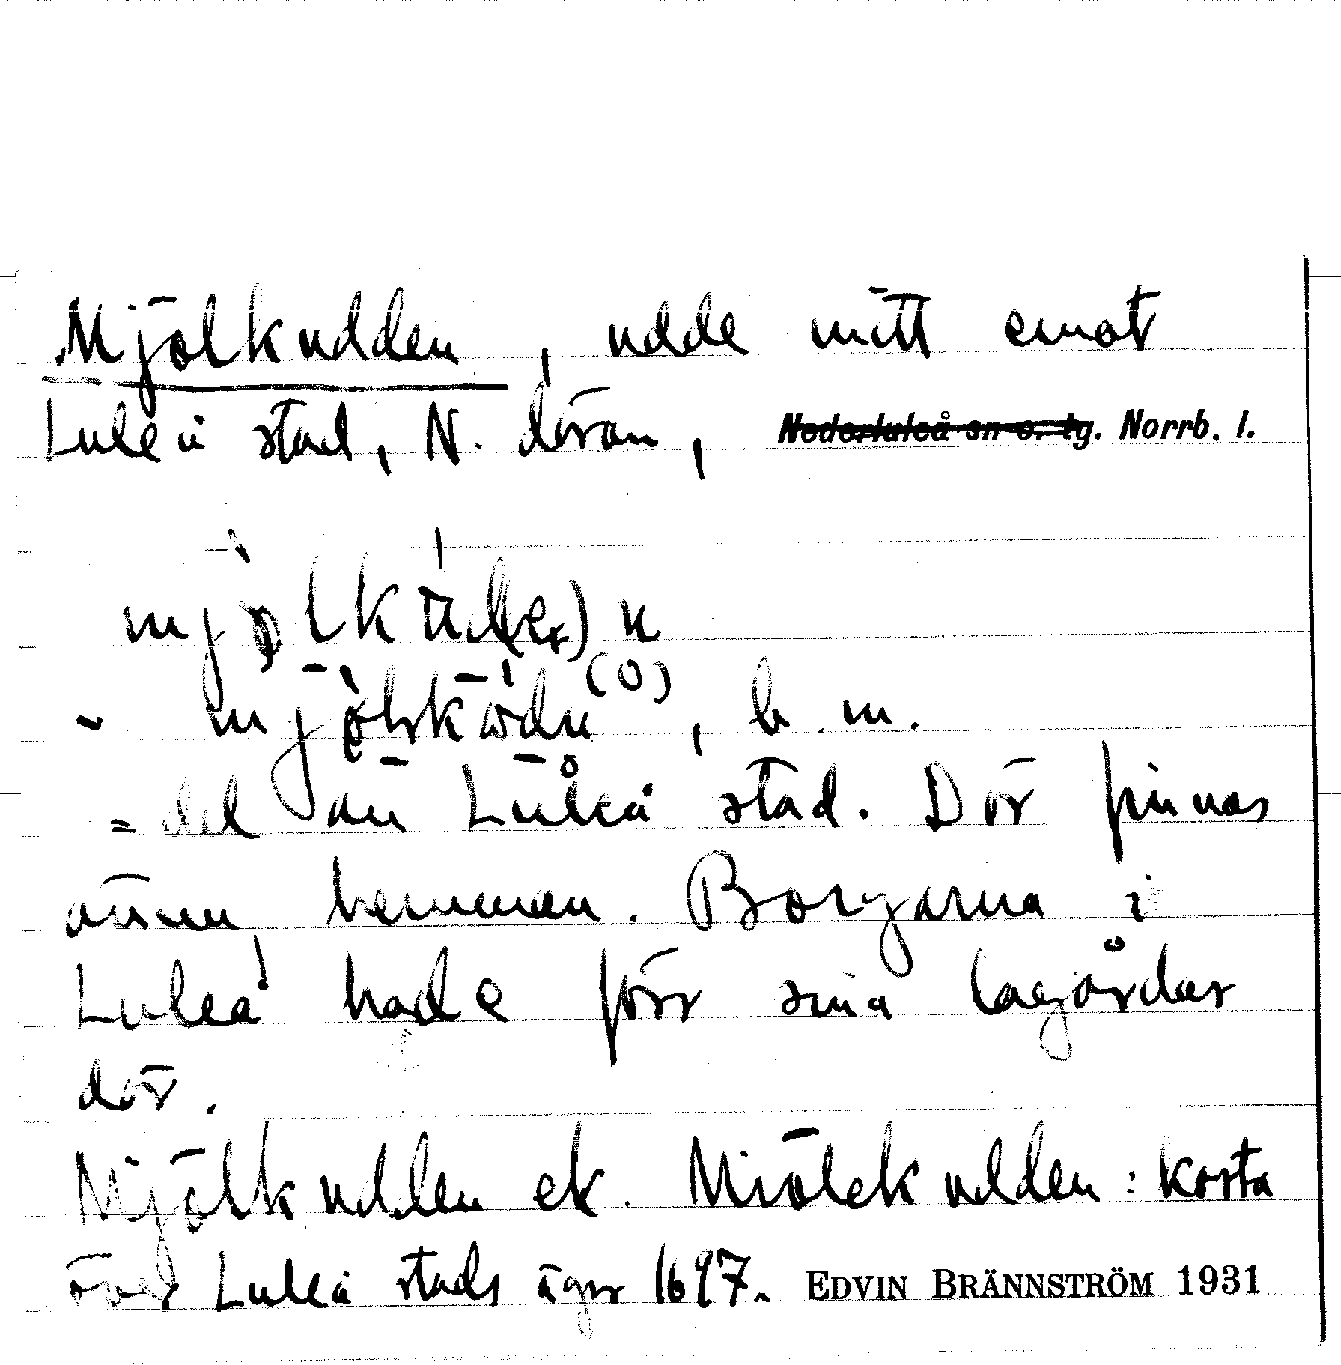 Mjölkudden, udde mitt emot
Luleå stad, N. därom, Nederluleå sn o. tg. Norrb. l.
b. m.
= del av Luleå stad. Där finnas
ännu hemman. Borgarna i
Luleå hade förr sina lagårdar
där.
Mjölkudden ek. Miölckudden: karta
över Luleå stads ägor 1697. EDVIN BRÄNNSTRÖM 1931